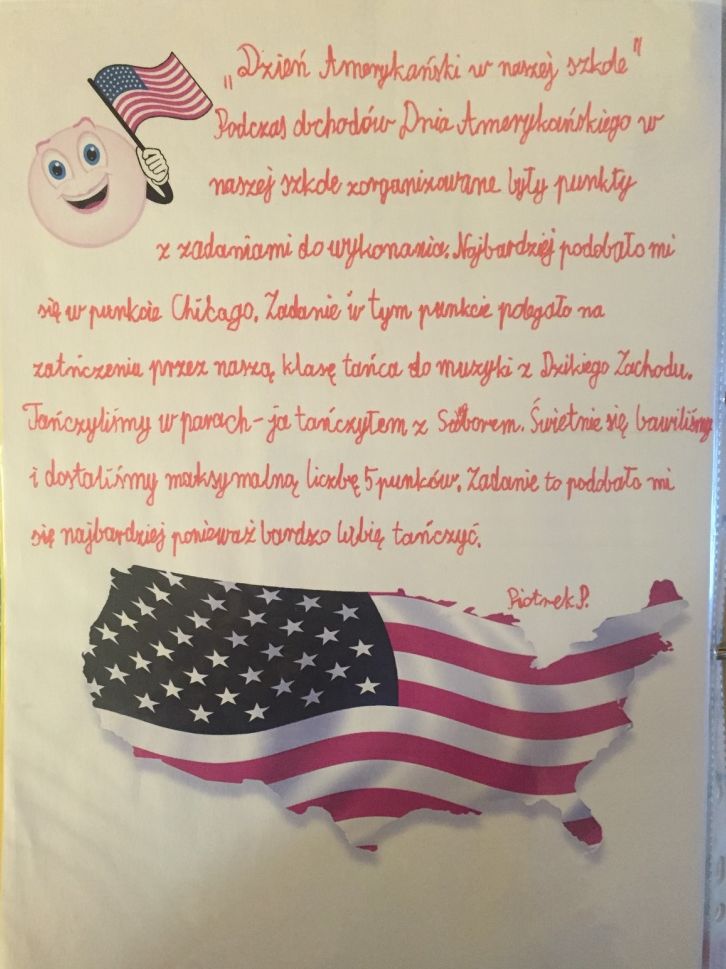 „Dzień Amerykański w naszej szkole"
Podczas obchodów Dnia Amerykańskiego w
naszej szkole zorganizowane były punkty
z zadaniami do wykonania. Najbardziej podobało mi
się w punkcie Chicago. Zadanie w tym punkcie polegało na
zatńczeniu przez naszą klasę tańca do muzyki z Dzikiego Zachodu.
Tańczyliśmy w parach - ja tańczyłem z . Świetnie się bawiliśmy
i dostaliśmy maksymalną liczbę 5 punków. Zadanie to podobało mi
się najbardziej ponieważ bardzo lubię tańczyć.
Piotrek P.